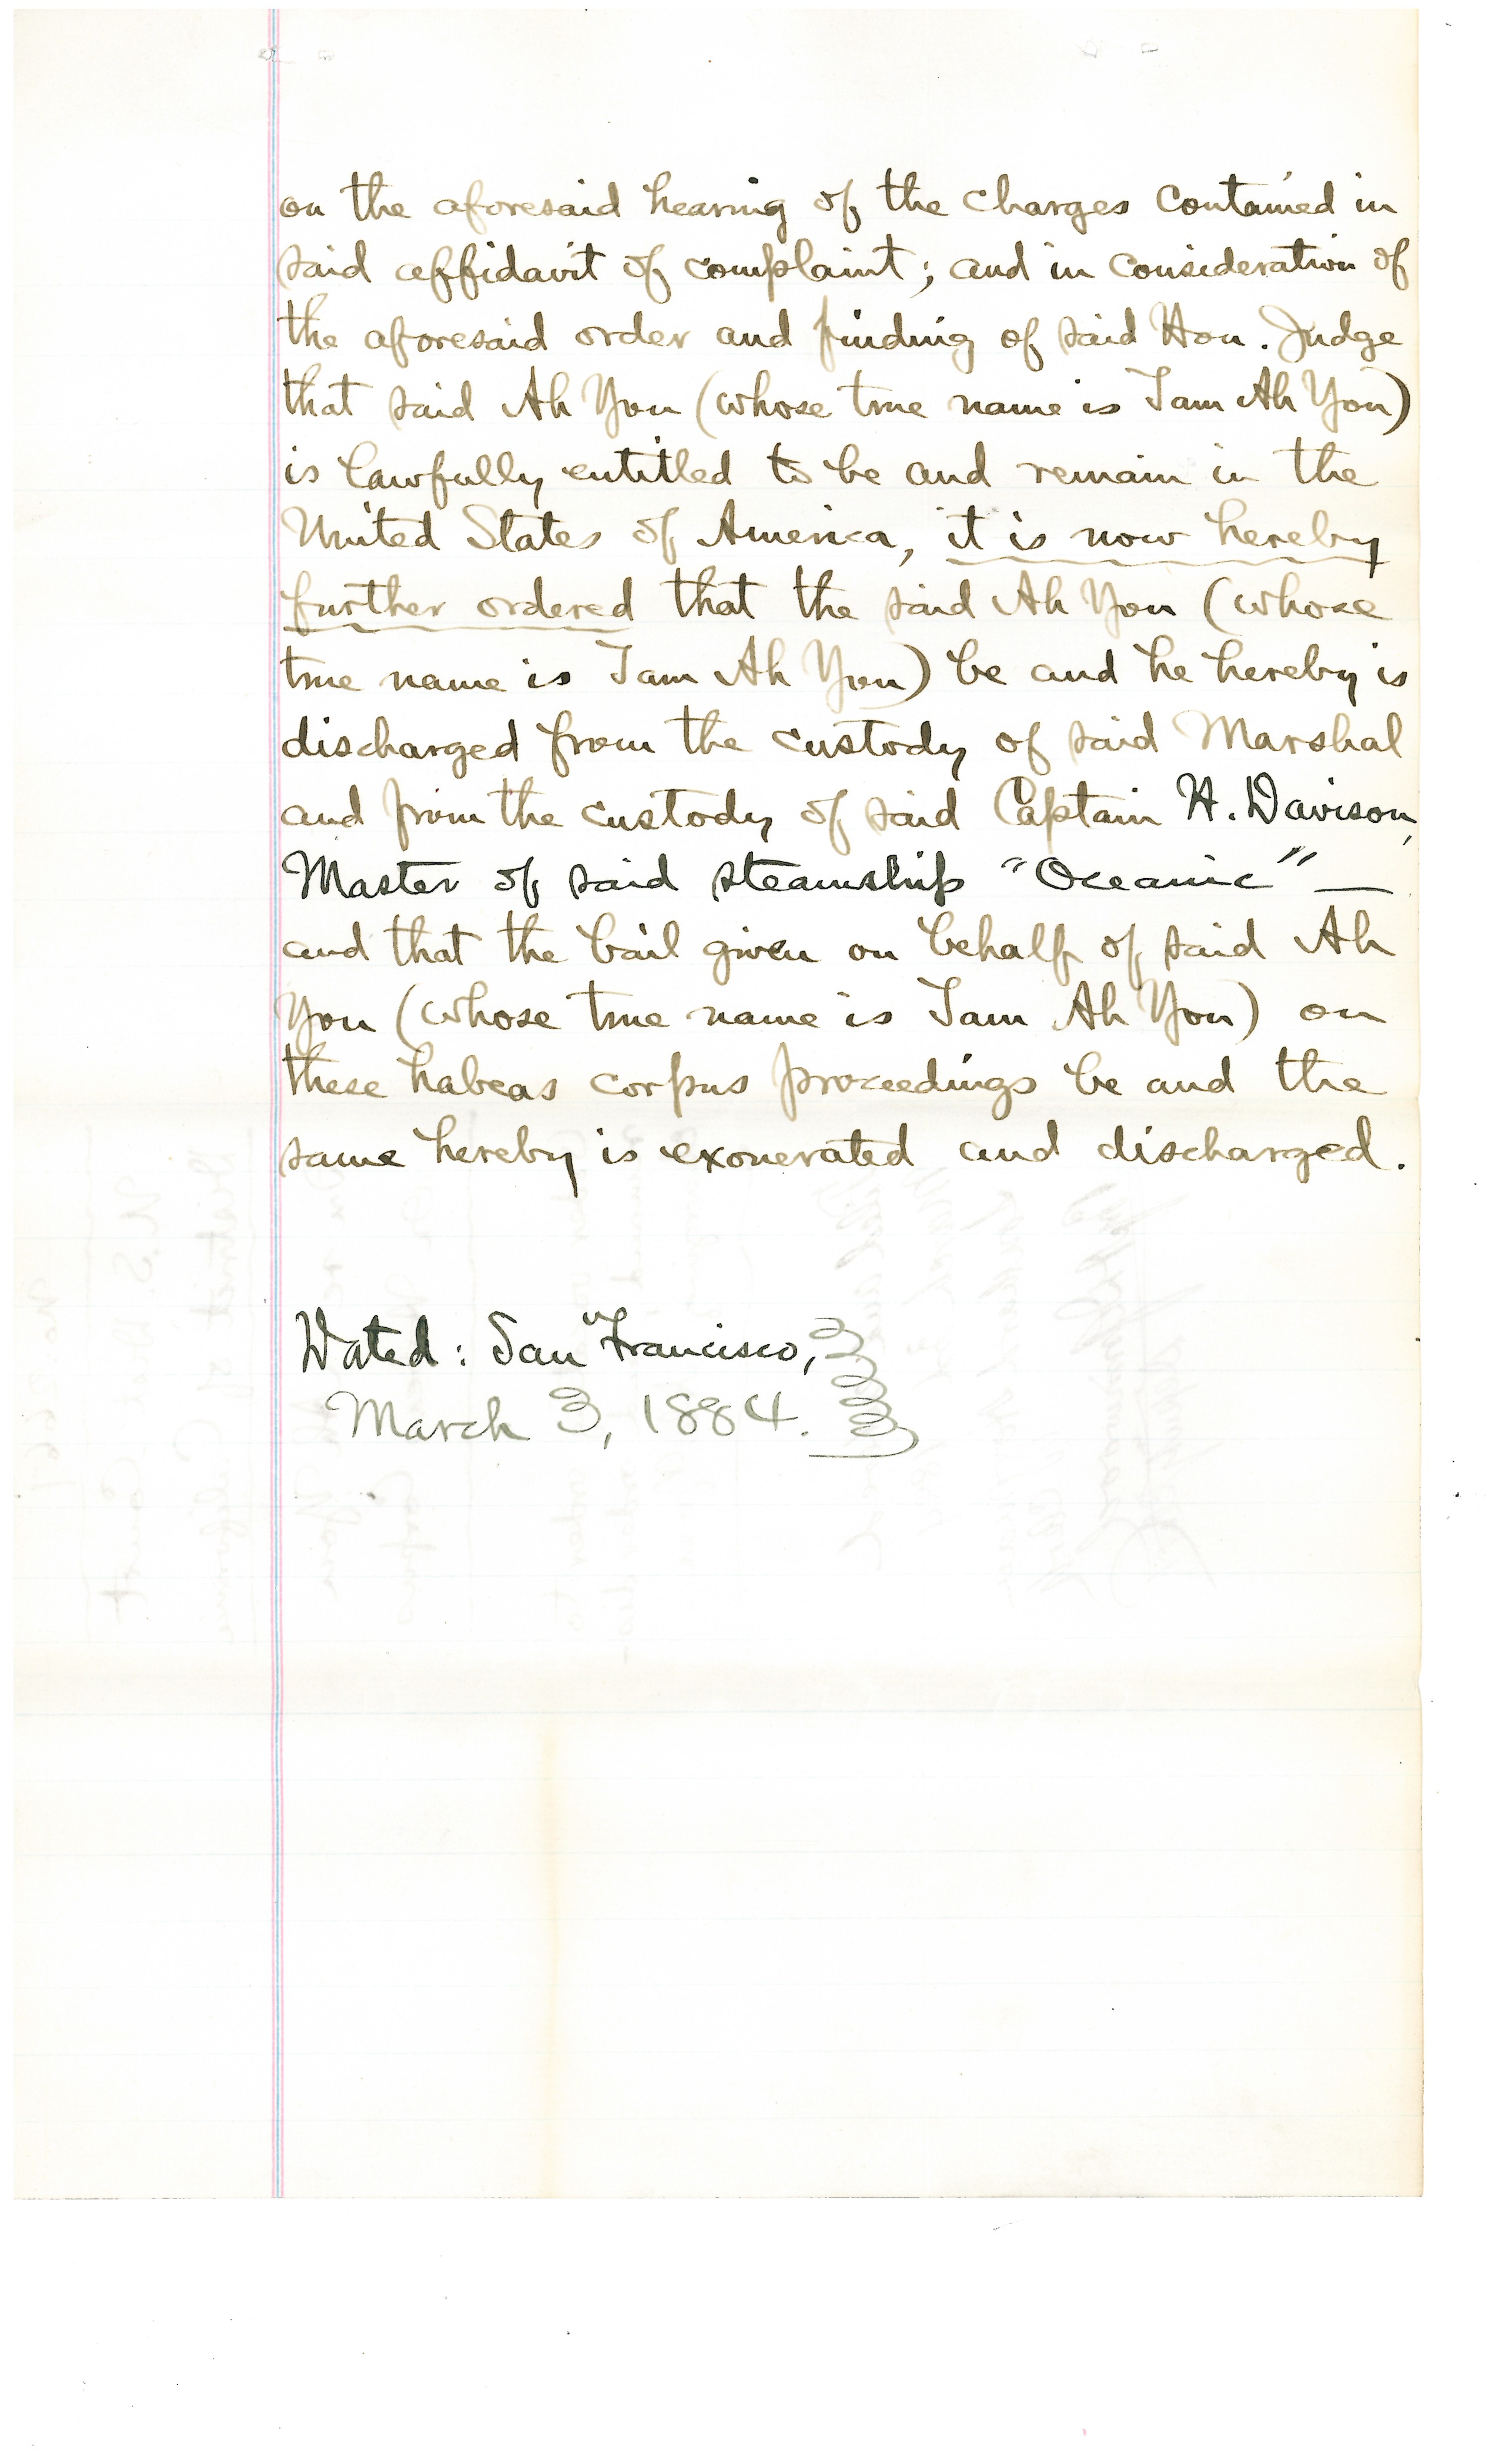 on the aforesaid hearing of the charges contained in
said affidavit of complaint; and in consideration of
the aforesaid order and finding of said Hon. Judge
that said Ah You (whose true name is Tam Ah You)
is lawfully entitled to be and remain in the
United States of America, it is now hereby
further ordered that the said Ah You (whose
true name is Tam Ah You) be and he hereby is
discharged from the custody of said Marshal
and from the custody of said Captain H. Davison,
Master of said steamship "Oceanic" —
and that the bail given on behalf of said Ah
You (whose true name is Tam Ah You) on
these habeas corpus proceedings be and the
same hereby is exonerated and discharged.
Dated: San Francisco,
March 3, 1884.